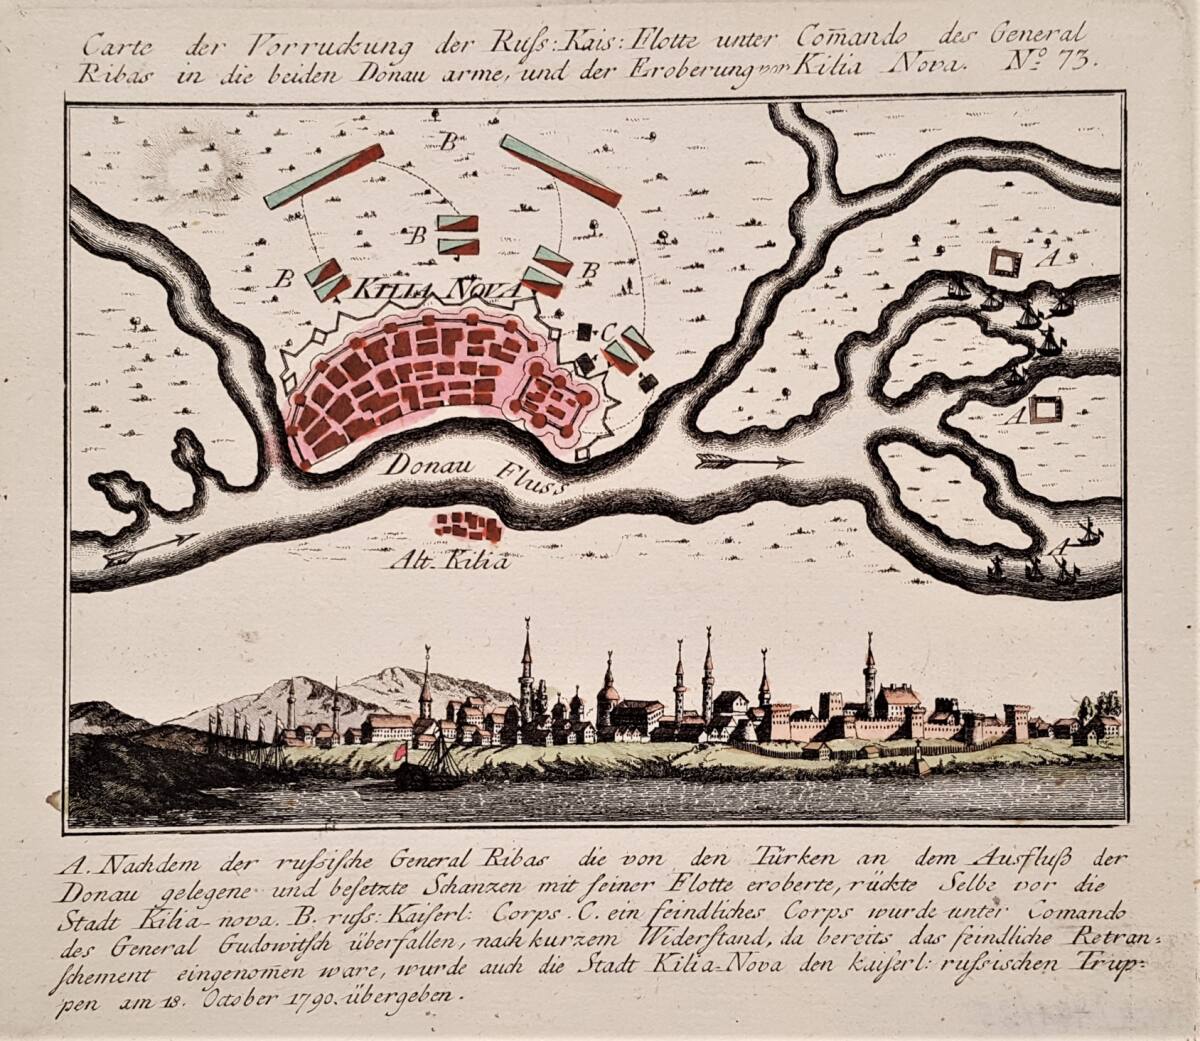 Carte der Vorruckung der Ruſs: Kais: Flotte unter Com̄ando des General
Ribas in die beiden Donau arme, und der Eroberung von Kilia Nova. No. 73.
B
B
B
B
KILIA NOVA
C
A
A
A
Donau Fluss
Alt-Kilia
A. Nachdem der ruſsiſche General Ribas die von den Türken an dem Ausfluß der
Donau gelegene und beſetzte Schanzen mit ſeiner Flotte eroberte, rückte Selbe vor die
Stadt Kilia-nova. B. ruſs: Kaiſerl: Corps. C. ein feindliches Corps wurde unter Comando
des General Gudowitſch überfallen, nach kurzem Widerſtand, da bereits das feindliche Retran:
ſchement eingenom̄en ware, wurde auch die Stadt Kilia-Nova den kaiſerl: ruſsischen Trup:
pen am 18. October 1790. übergeben.